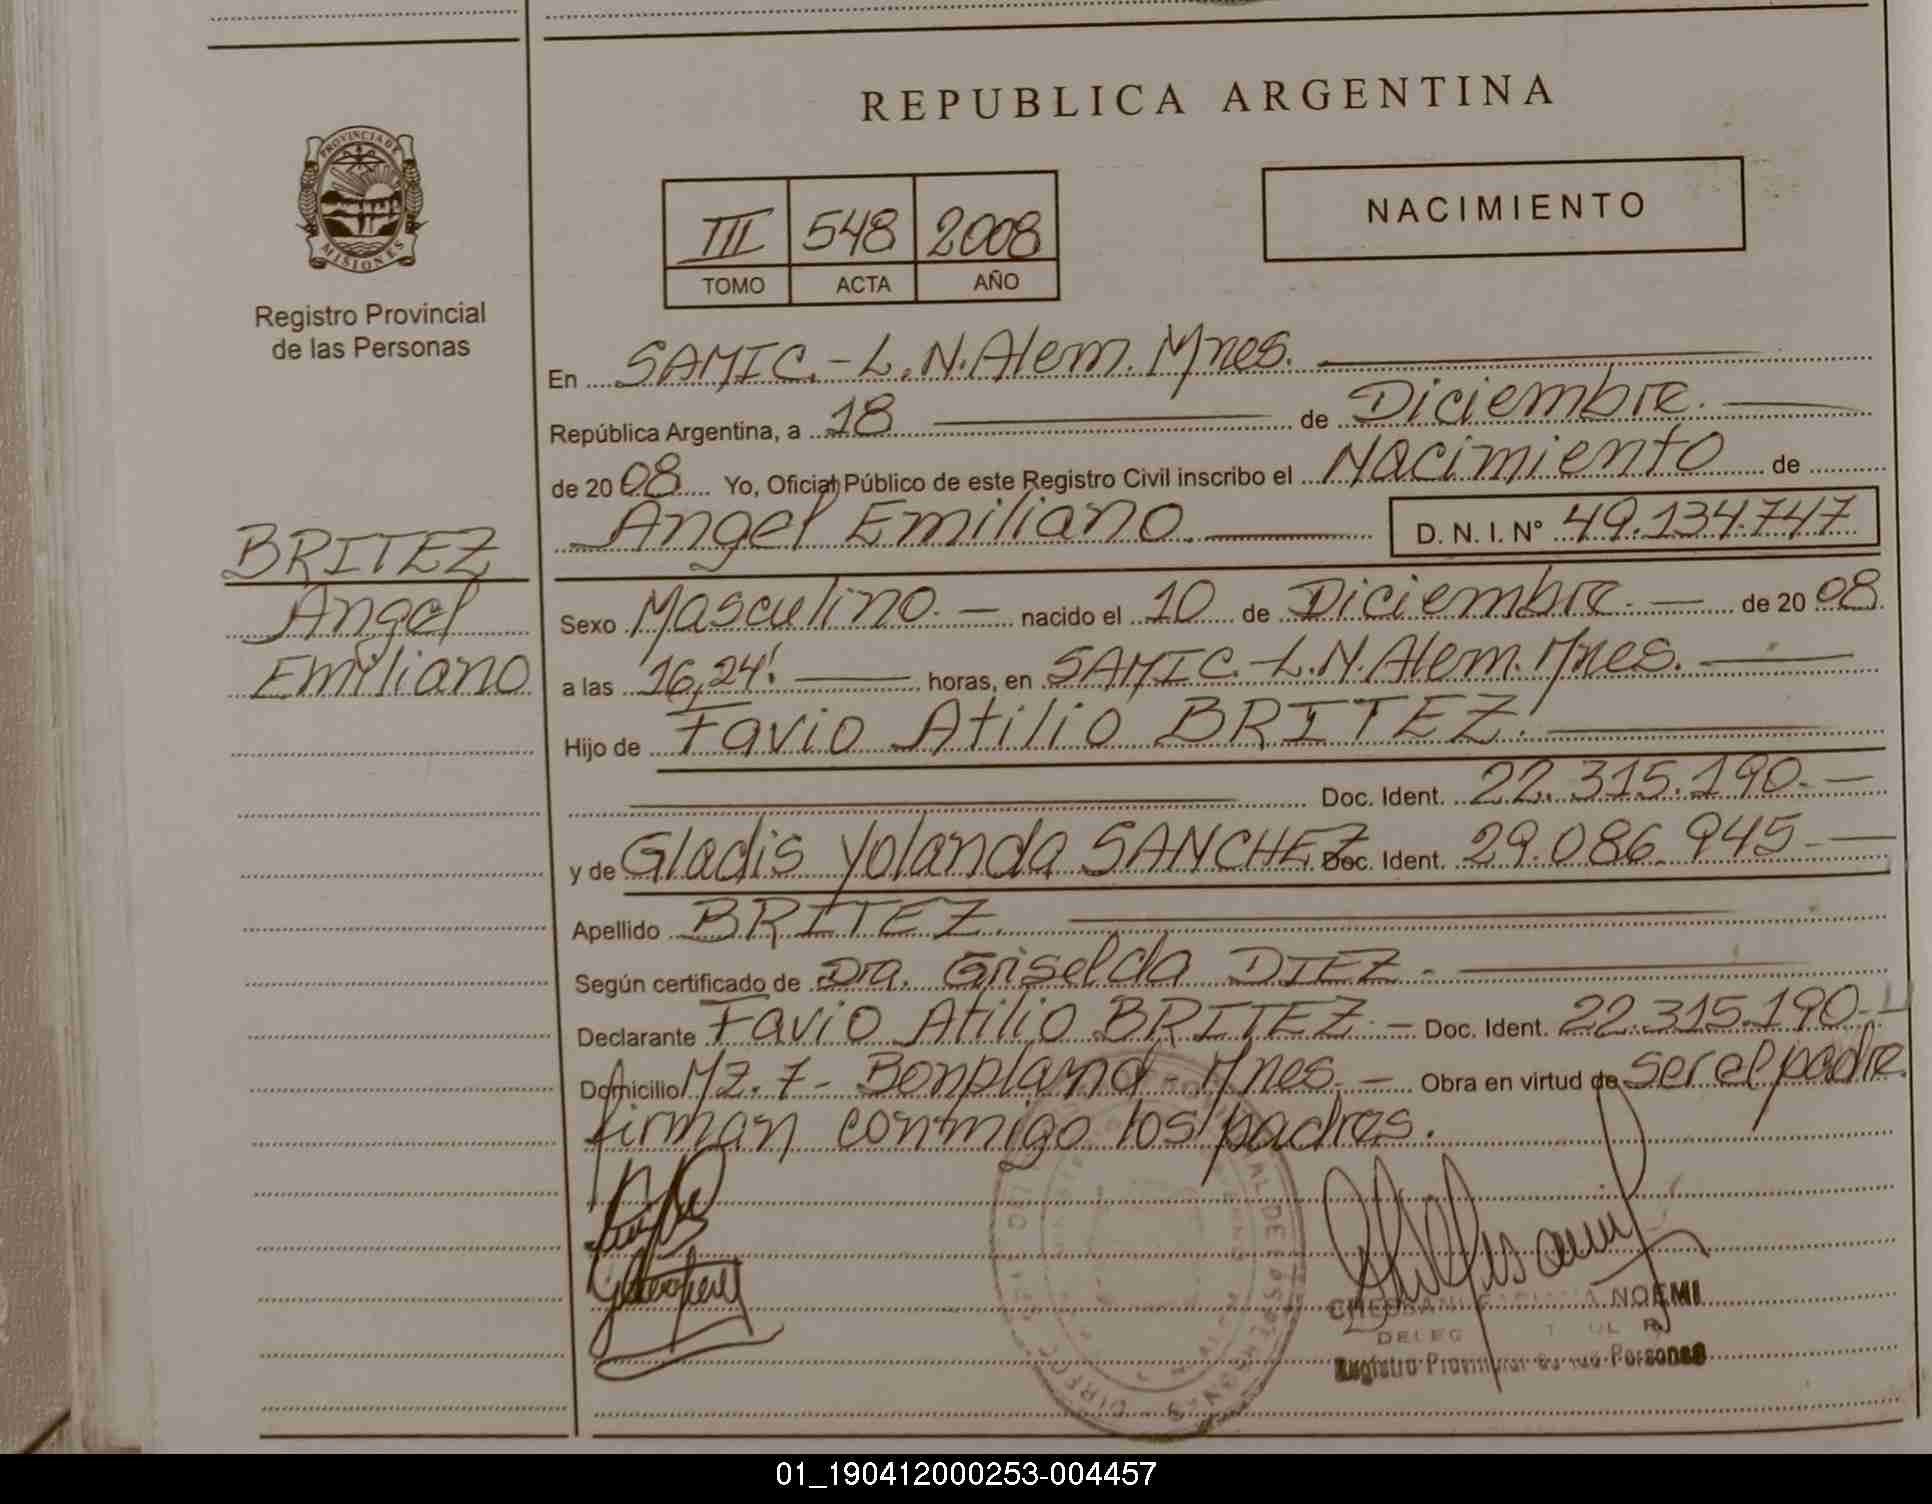 REPUBLICA ARGENTINA
PROVINCIA DE
MISIONES
Registro Provincial
de las Personas
III 548 2008
TOMO ACTA AÑO
NACIMIENTO
En SAMIC.-L.N.Alem.Mnes.
República Argentina, a 18 de Diciembre.
de 2008 Yo, Oficial Público de este Registro Civil inscribo el Nacimiento de
Angel Emiliano. D. N. I. Nº 49.134.747
BRITEZ
Angel
Emiliano
Sexo Masculino.- nacido el 10 de Diciembre.- de 2008
a las 16,24'. horas, en SAMIC.-L.N.Alem.Mnes.
Hijo de Favio Atilio BRITEZ.
Doc. Ident. 22.315.190.-
y de Gladis Yolanda SANCHEZ Doc. Ident. 29.086.945.-
Apellido BRITEZ.
Según certificado de Dra. Griselda DIEZ.
Declarante Favio Atilio BRITEZ.- Doc. Ident. 22.315.190.-
Domicilio Mz.7- Bonpland- Mnes.- Obra en virtud de ser el padre
firman conmigo los padres.
NOEMI
Registro Provincial de las Personas
01_190412000253-004457